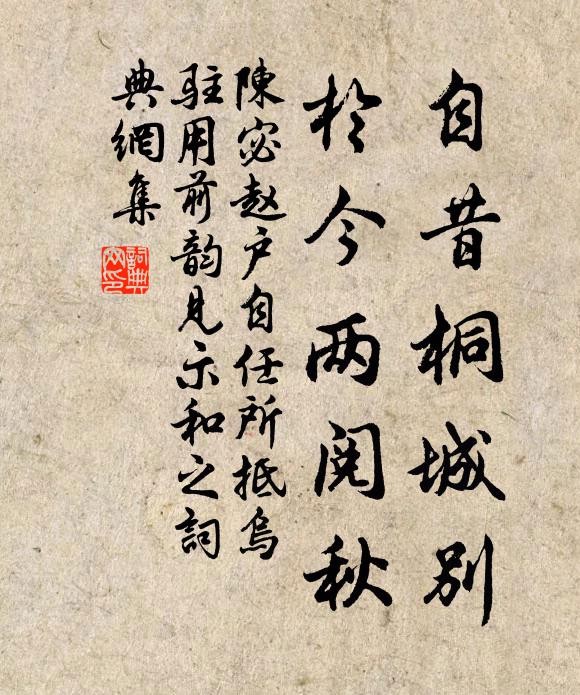 自昔桐城别
於今两阅秋
陳宓赵户自任所抵烏
驻用前韵見示和之詞
典網集
詞典
网印